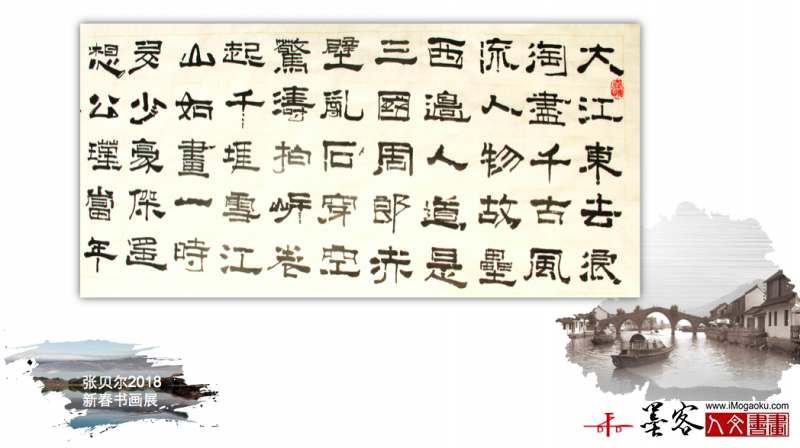 大江東去浪
淘盡千古風
流人物故壘
西邊人道是
三國周郎赤
壁亂石穿空
驚濤拍岸卷
起千堆雪江
山如畫一時
多少豪傑遥
想公瑾當年
张贝尔2018
新春书画展
墨客
www.iMogaoku.com
人文書畫